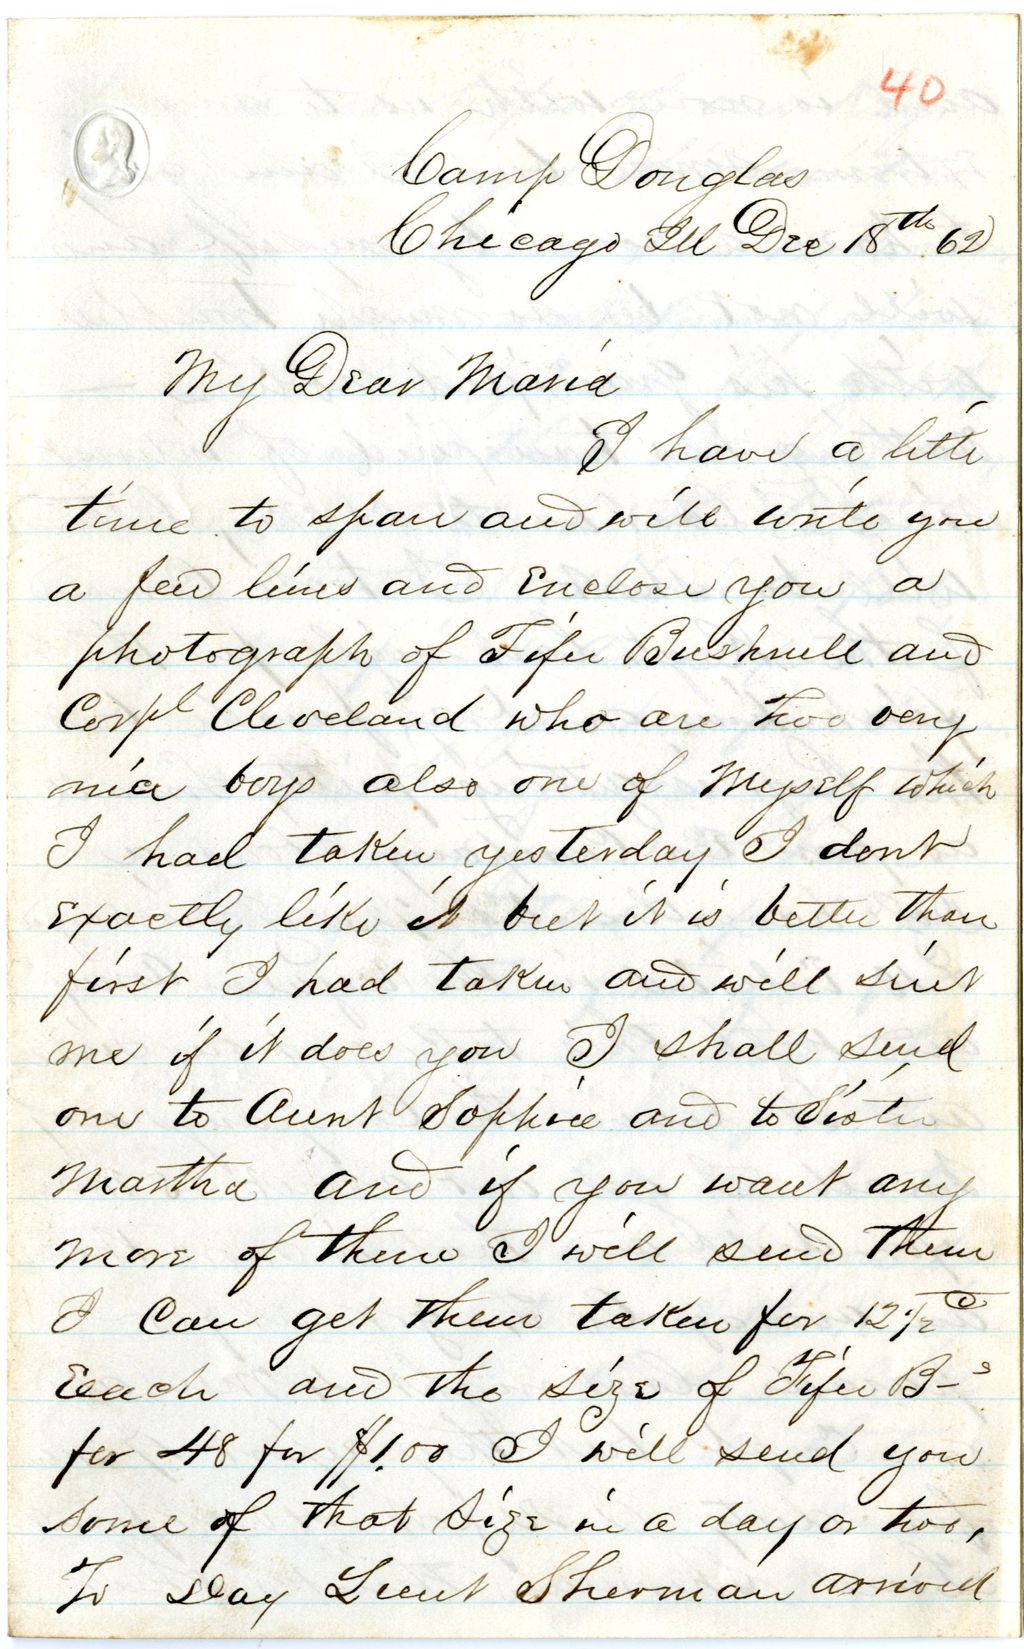 40
Camp Douglas
Chicago Ill Dec 18th 62
My Dear Maria
I have a little
time to spare and will write you
a few lines and Enclose you a
photograph of Fifer Bushnell and
Corpl Cleveland who are two very
nice boys also one of Myself which
I had taken yesterday I dont
Exactly like it but it is better than
first I had taken and will suit
me if it does you I shall send
one to Aunt Sophie and to Sister
Martha and if you want any
more of them I will send them
I Can get them taken for 12 1/2 c
Each and the size of Fifer B-s
for 48 for $1.00 I will send you
some of that Size in a day or two,
To Day Lieut Sherman arrived